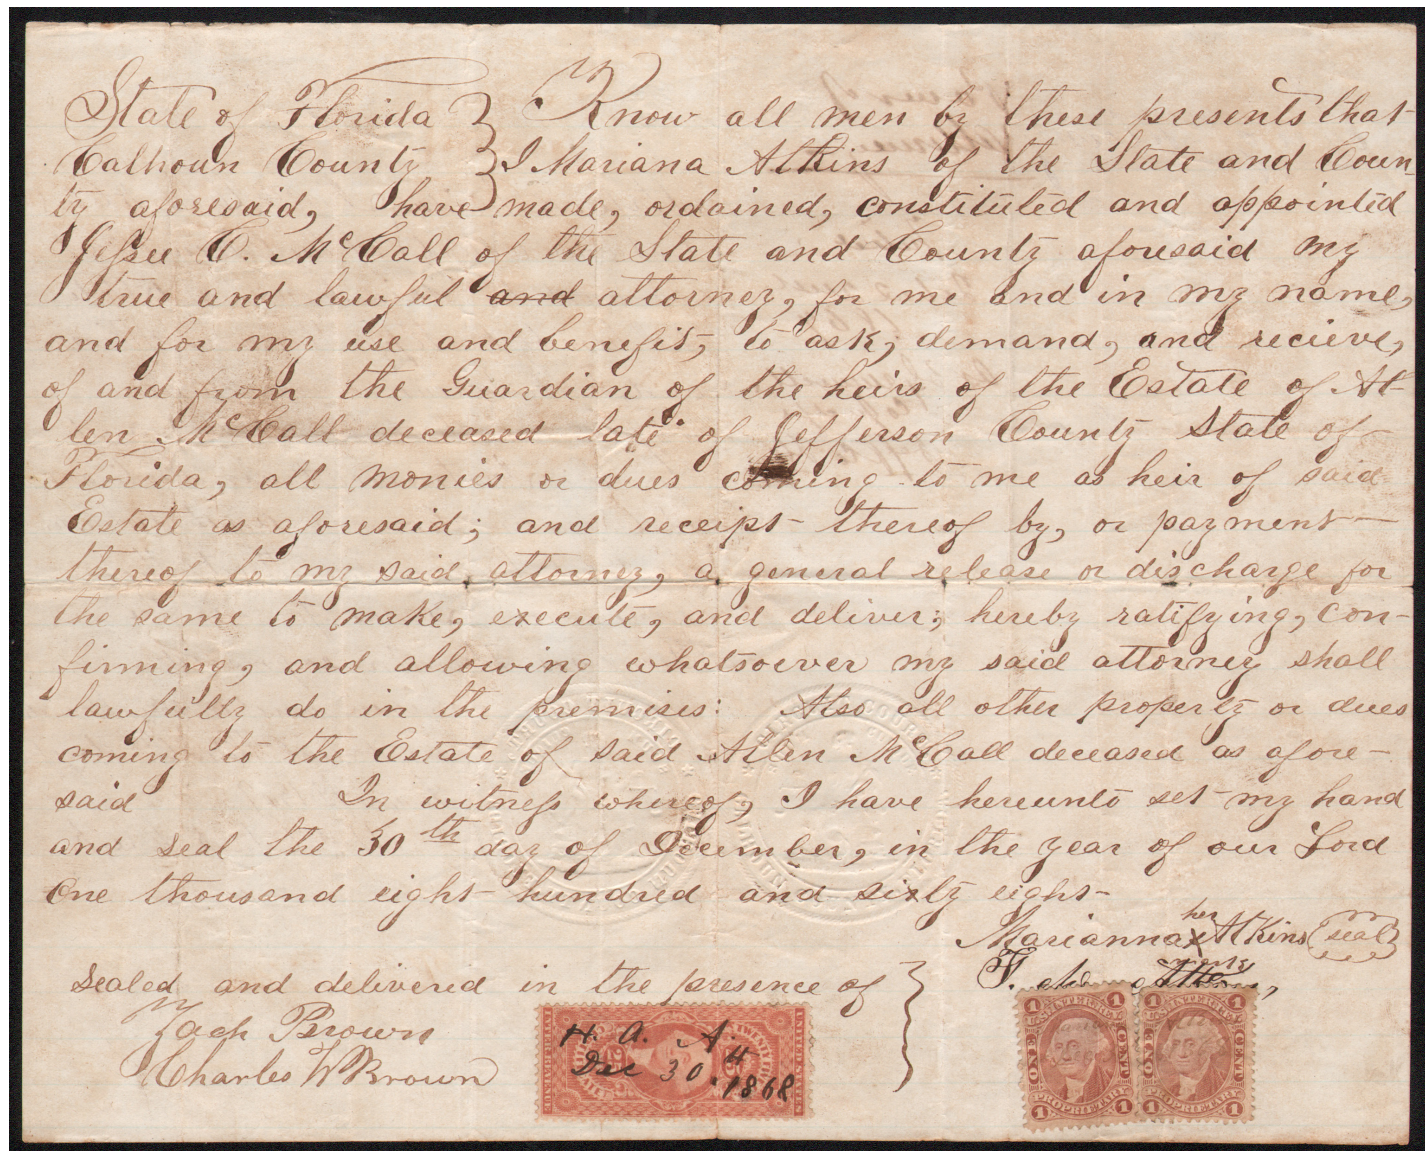 State of Florida } Know all men by these presents that
Calhoun County } I Mariana Atkins of the State and Coun-
ty aforesaid, have made, ordained, constituted and appointed
Jessee C. McCall of the State and County aforesaid my
true and lawful and attorney, for me and in my name,
and for my use and benefit, to ask, demand, and recieve,
of and from the Guardian of the heirs of the Estate of At-
len McCall deceased late of Jefferson County State of
Florida, all monies or dues coming to me as heir of said
Estate as aforesaid; and receipt thereof by, or payment
thereof to my said attorney, a general release or discharge for
the same to make, execute, and deliver; hereby ratifying, con-
firming, and allowing whatsoever my said attorney shall
lawfully do in the premises: Also all other property or dues
coming to the Estate of said Atlen McCall deceased as afore-
said In witness whereof, I have hereunto set my hand
and seal the 30th day of December, in the year of our Lord
One thousand eight hundred and sixty eight
her
Marianna x Atkins (seal)
mark
sealed and delivered in the presence of }
Zach Brown
Charles W Brown
H. A. A.
Dec 30.th 1868
U.S. INTER. REV. U.S. INTER. REV.
1 1 1 1
ONE CENT ONE CENT
PROPRIETARY PROPRIETARY
1 1 1 1